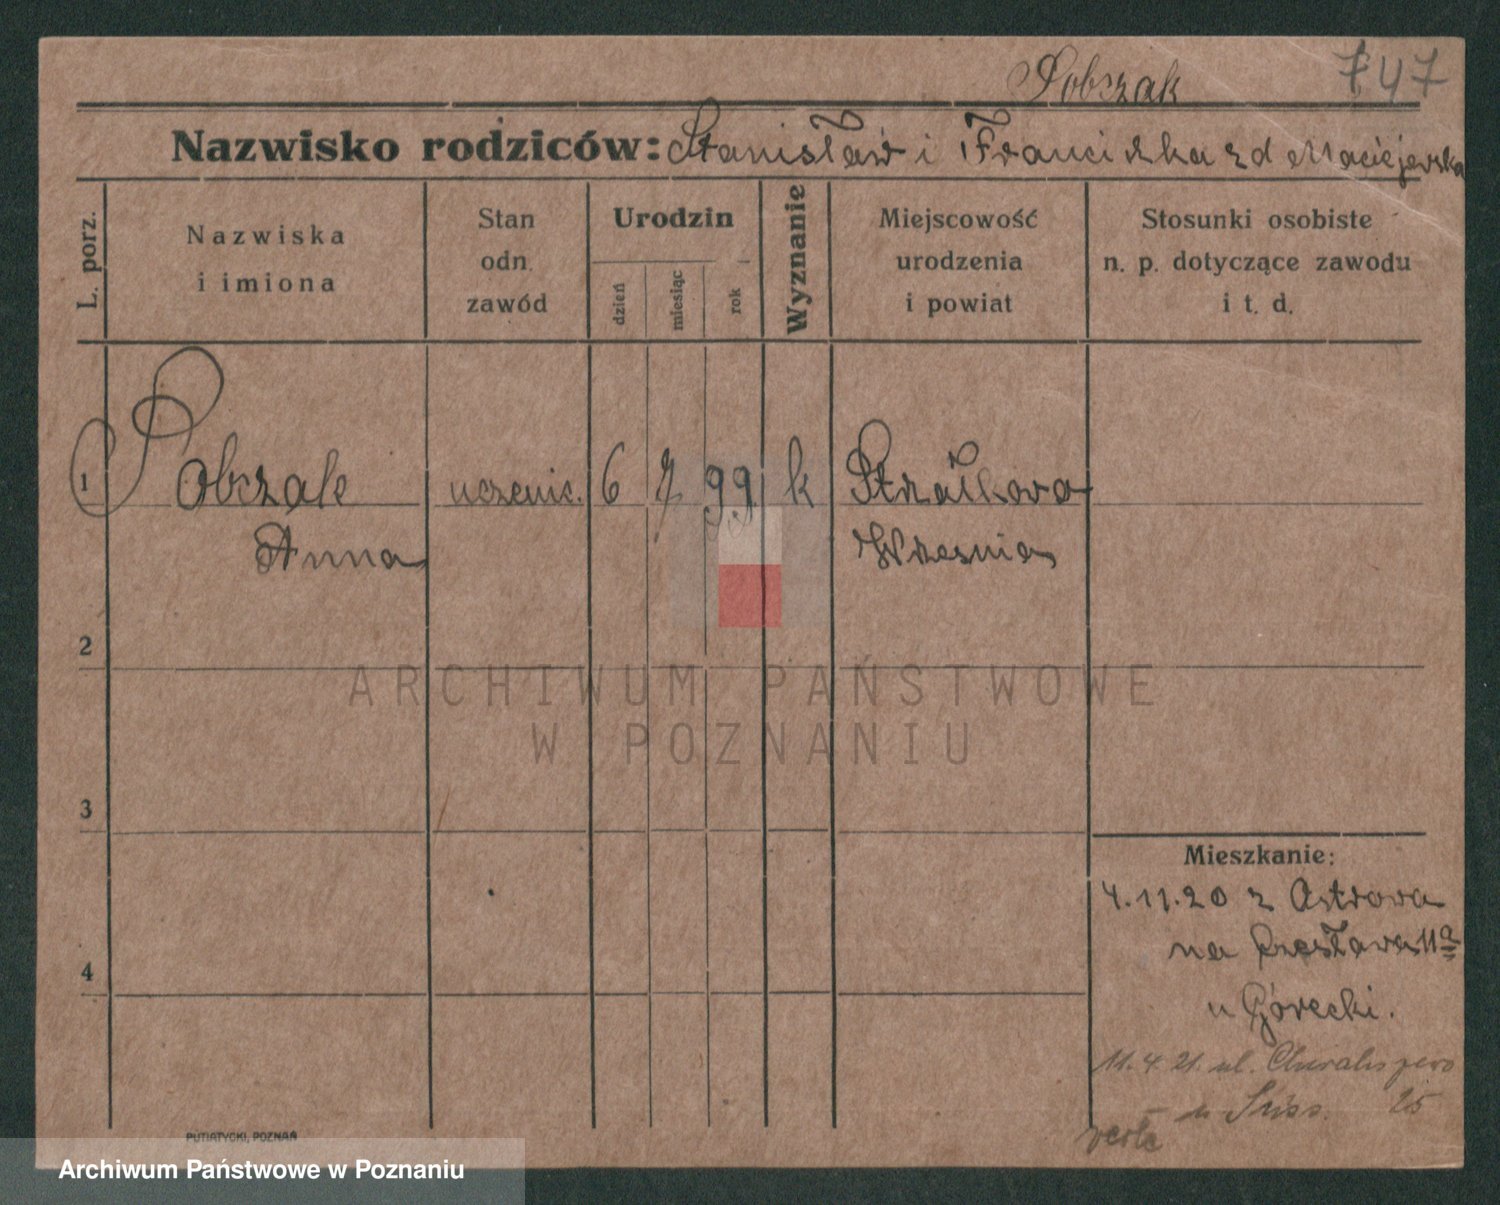 Sobczak 747
Nazwisko rodziców: Stanisław i Franciszka zd Maciejewska
L. porz.
Nazwiska
i imiona
Stan
odn.
zawód
Urodzin
dzień
miesiąc
rok
Wyznanie
Miejscowość
urodzenia
i powiat
Stosunki osobiste
n. p. dotyczące zawodu
i t. d.
1 Sobczak uczenic. 6 7 99. k Strzałkowo
Anna Wrzesnia
2
ARCHIWUM PAŃSTWOWE
W POZNANIU
3
Mieszkanie:
4.11.20 z Ostrowa
na Czesława 11a
4
u Górecki.
11.4.21. ul.
25
verte
PUTIATYCKI, POZNAŃ
Archiwum Państwowe w Poznaniu